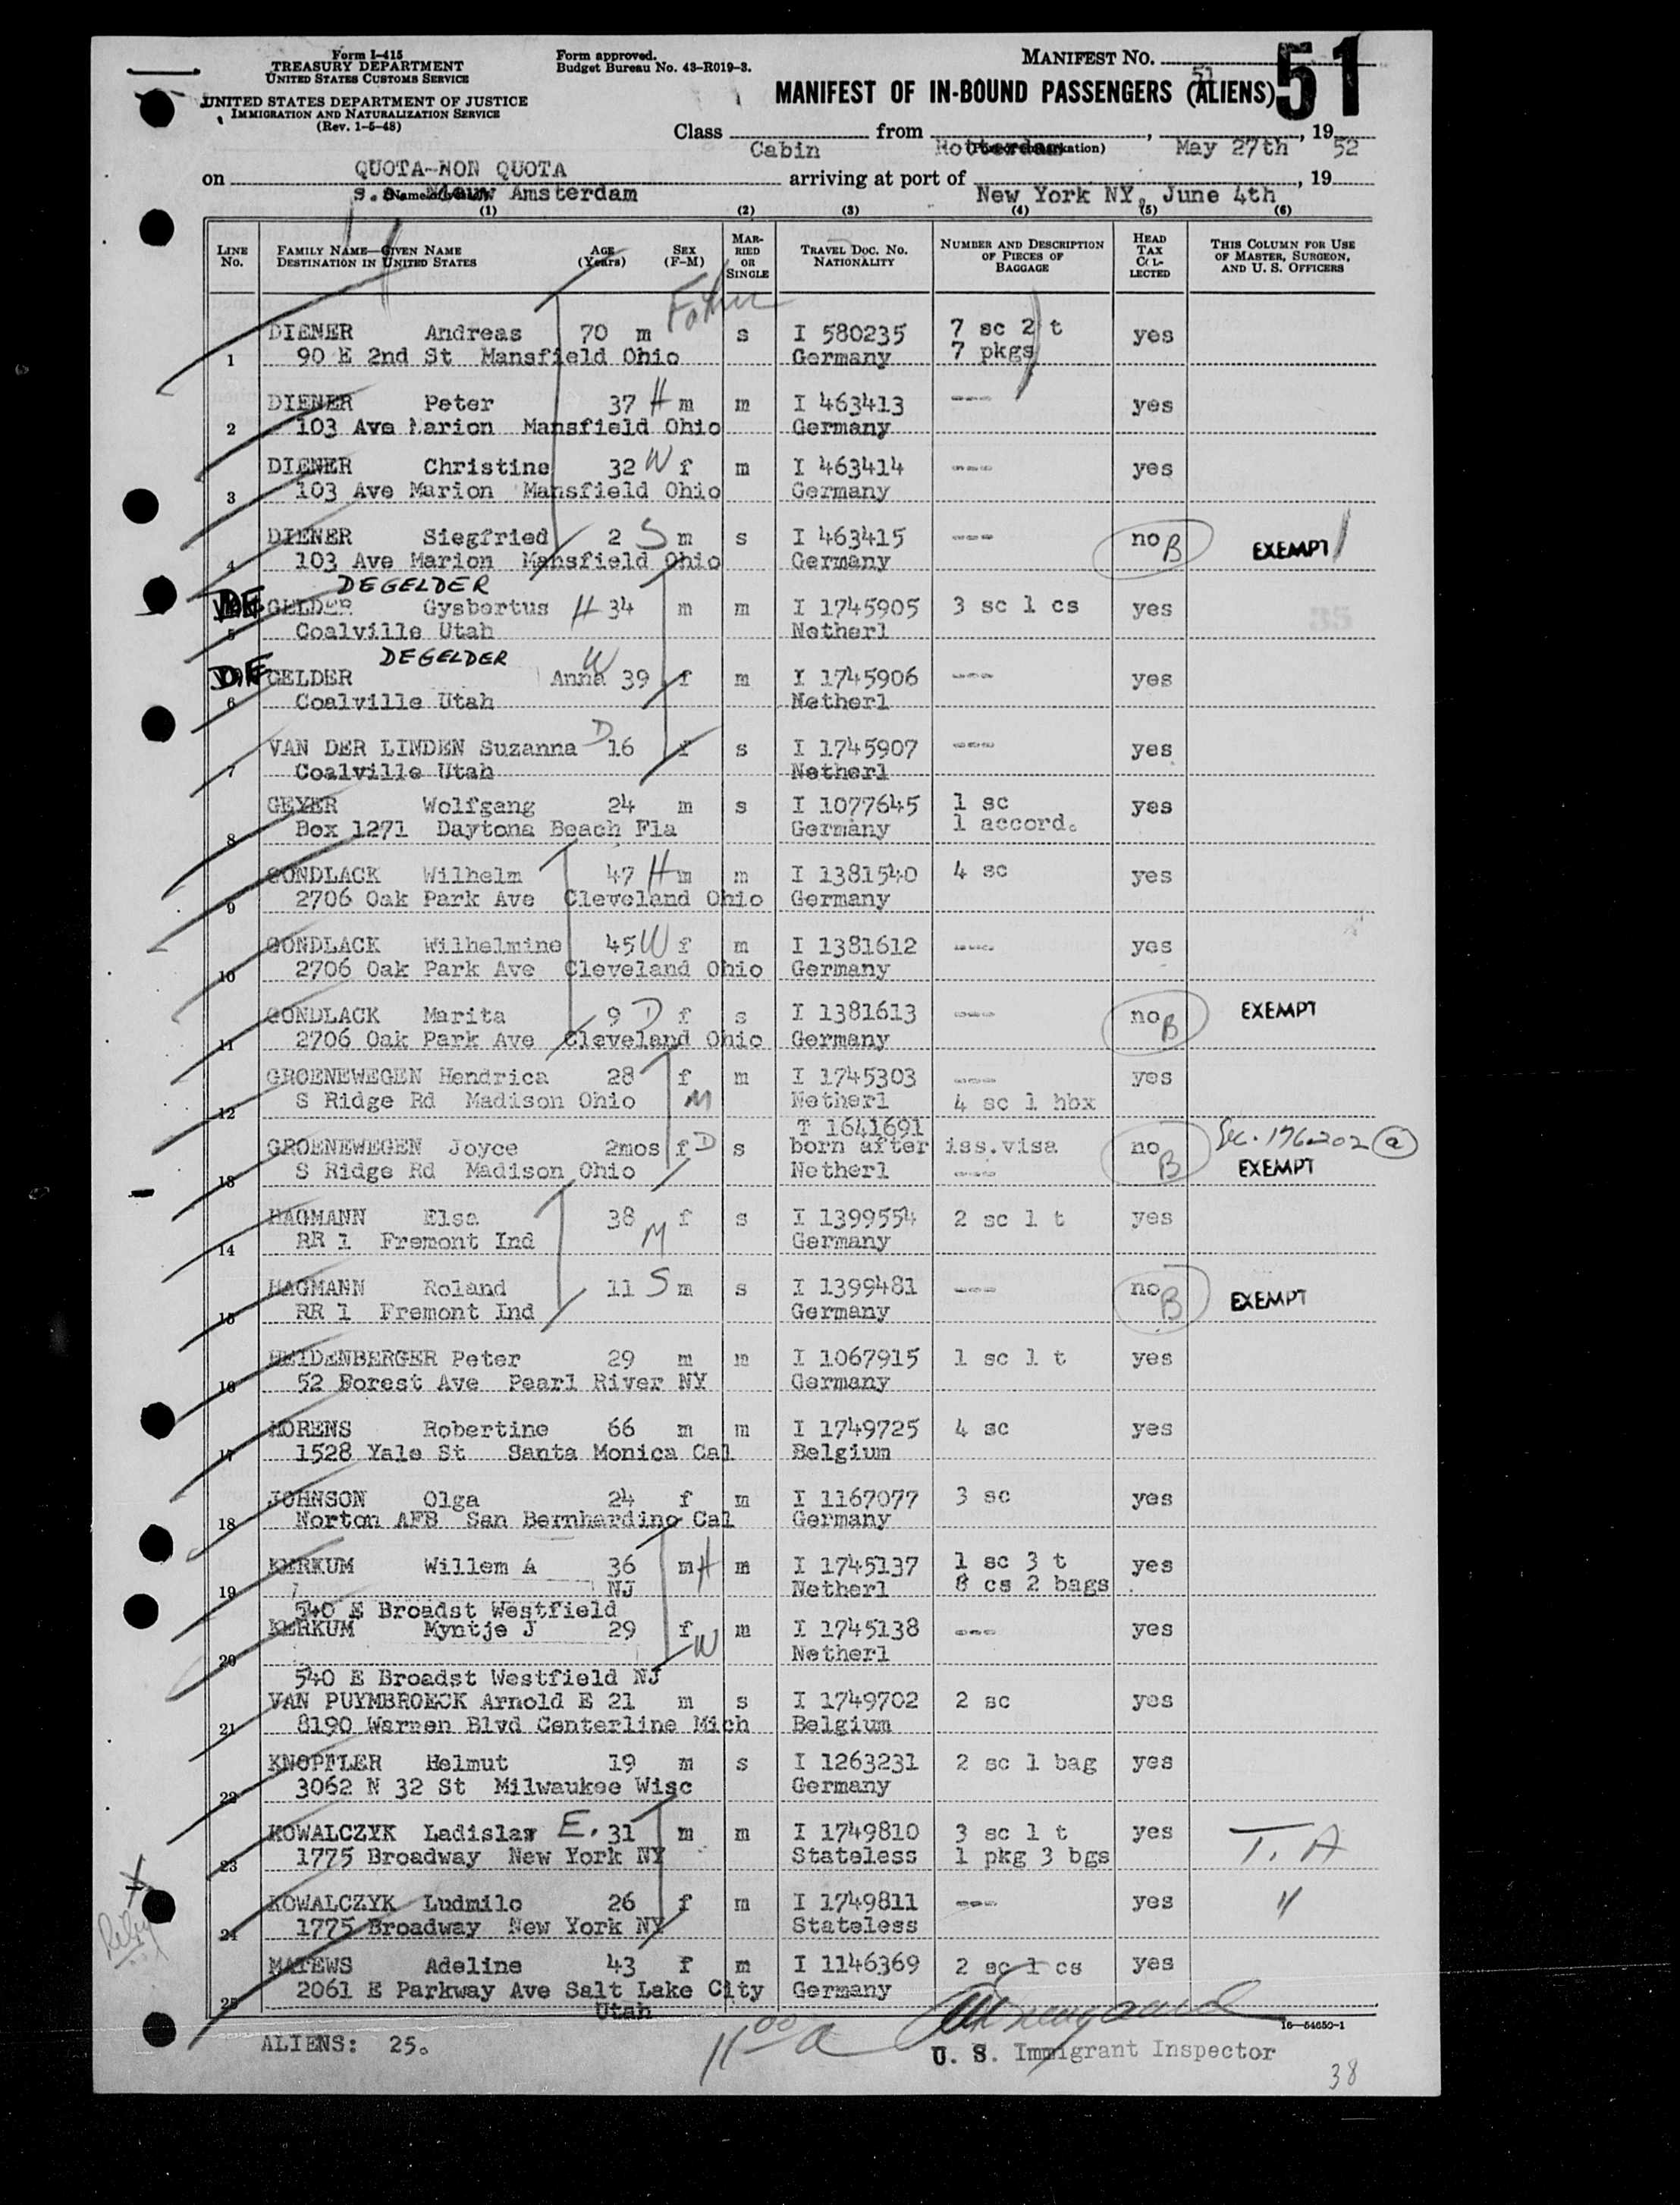 Form I-415
TREASURY DEPARTMENT
UNITED STATES CUSTOMS SERVICE
UNITED STATES DEPARTMENT OF JUSTICE
IMMIGRATION AND NATURALIZATION SERVICE
(Rev. 1-5-48)
Form approved.
Budget Bureau No. 43-R019-3.
MANIFEST NO. 51
51
MANIFEST OF IN-BOUND PASSENGERS (ALIENS)
Class Cabin from Rotterdam, May 27th, 19 52
QUOTA-NON QUOTA
on s.s. Nieuw Amsterdam arriving at port of New York NY, June 4th, 19
(1) (2) (3) (4) (5) (6)
LINE No. FAMILY NAME—GIVEN NAME DESTINATION IN UNITED STATES AGE (Years) SEX (F-M) MARRIED OR SINGLE TRAVEL DOC. NO. NATIONALITY NUMBER AND DESCRIPTION OF PIECES OF BAGGAGE HEAD TAX COLLECTED THIS COLUMN FOR USE OF MASTER, SURGEON, AND U. S. OFFICERS
Father
DIENER Andreas 70 m s I 580235 7 sc 2 t yes
1 90 E 2nd St Mansfield Ohio Germany 7 pkgs
DIENER Peter 37 H m m I 463413 --- yes
2 103 Ave Marion Mansfield Ohio Germany
DIENER Christine 32 W f m I 463414 --- yes
3 103 Ave Marion Mansfield Ohio Germany
DIENER Siegfried 2 S m s I 463415 --- no B EXEMPT
4 103 Ave Marion Mansfield Ohio Germany
DEGELDER
DE GELDER Gysbertus H 34 m m I 1745905 3 sc 1 cs yes
5 Coalville Utah Netherl
DEGELDER
DE GELDER Anna W 39 f m I 1745906 --- yes
6 Coalville Utah Netherl
VAN DER LINDEN Suzanna D 16 f s I 1745907 --- yes
7 Coalville Utah Netherl
GEYER Wolfgang 24 m s I 1077645 1 sc yes
8 Box 1271 Daytona Beach Fla Germany 1 accord.
GONDLACK Wilhelm 47 H m m I 1381540 4 sc yes
9 2706 Oak Park Ave Cleveland Ohio Germany
GONDLACK Wilhelmine 45 W f m I 1381612 --- yes
10 2706 Oak Park Ave Cleveland Ohio Germany
GONDLACK Marita 9 D f s I 1381613 --- no B EXEMPT
11 2706 Oak Park Ave Cleveland Ohio Germany
GROENEWEGEN Hendrica 28 f m I 1745303 --- yes
12 S Ridge Rd Madison Ohio M Netherl 4 sc 1 hbx
T 1641691
GROENEWEGEN Joyce 2mos f D s born after iss.visa no B Sec. 176.202 (a)
13 S Ridge Rd Madison Ohio Netherl --- EXEMPT
HAGMANN Elsa 38 f s I 1399554 2 sc 1 t yes
14 RR 1 Fremont Ind M Germany
HAGMANN Roland 11 S m s I 1399481 --- no B EXEMPT
15 RR 1 Fremont Ind Germany
HEIDENBERGER Peter 29 m m I 1067915 1 sc 1 t yes
16 52 Forest Ave Pearl River NY Germany
HORENS Robertine 66 m m I 1749725 4 sc yes
17 1528 Yale St Santa Monica Cal Belgium
JOHNSON Olga 24 f m I 1167077 3 sc yes
18 Norton AFB San Bernhardino Cal Germany
KERKUM Willem A 36 m H m I 1745137 1 sc 3 t yes
19 NJ Netherl 8 cs 2 bags
540 E Broadst Westfield
KERKUM Myntje J 29 f W m I 1745138 --- yes
20 Netherl
540 E Broadst Westfield NJ
VAN PUYMBROECK Arnold E 21 m s I 1749702 2 sc yes
21 8190 Warren Blvd Centerline Mich Belgium
KNOPFLER Helmut 19 m s I 1263231 2 sc 1 bag yes
22 3062 N 32 St Milwaukee Wisc Germany
KOWALCZYK Ladislaw E. 31 m m I 1749810 3 sc 1 t yes T. A
23 1775 Broadway New York NY Stateless 1 pkg 3 bgs
KOWALCZYK Ludmilo 26 f m I 1749811 --- yes "
24 1775 Broadway New York NY Stateless
MATEWS Adeline 43 f m I 1146369 2 sc 1 cs yes
25 2061 E Parkway Ave Salt Lake City Germany
Utah
16-54650-1
ALIENS: 25.
11 00 a
U. S. Immigrant Inspector
38